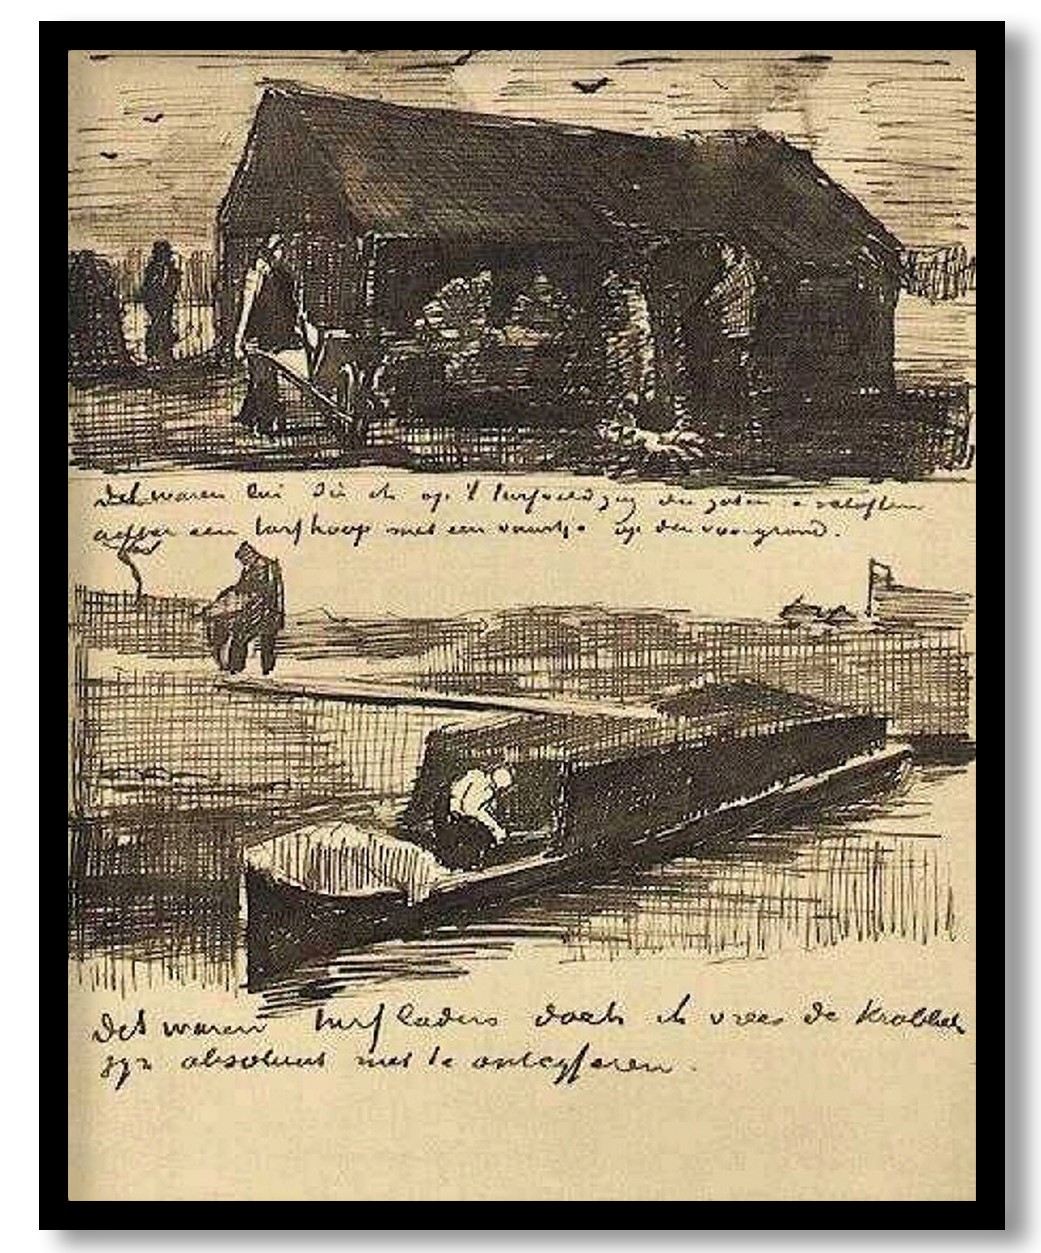 Dit waren lui die ik op 't turfveld zag die zaten te schoften
achter een turfhoop met een vuurtje op den voorgrond.
Dit waren turfladers doch ik vrees de krabbels
zijn absoluut niet te ontcijferen.